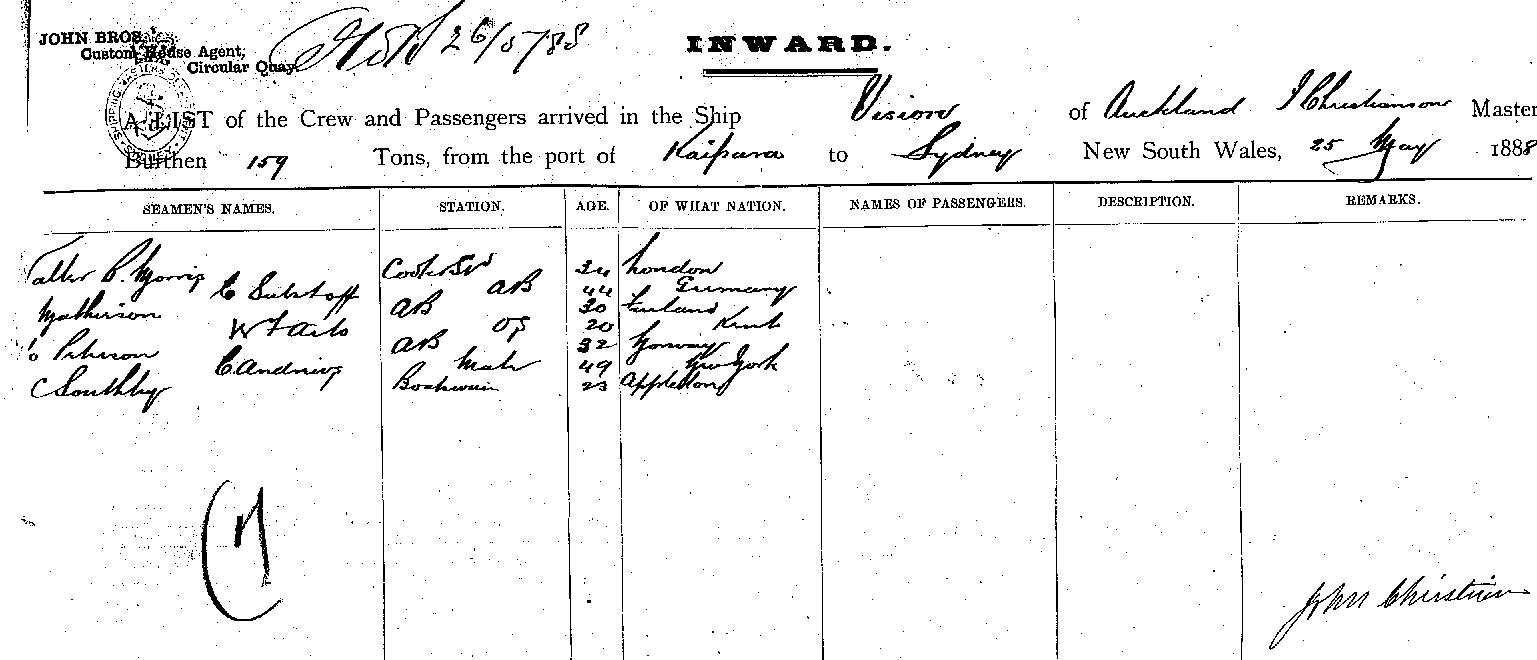 JOHN BROS.
Custom House Agent,
Circular Quay.
26/5/88
INWARD.
A LIST of the Crew and Passengers arrived in the Ship Vision of Auckland J Christianson Master
Burthen 159 Tons, from the port of Kaipara to Sydney New South Wales, 25 May 1888
SEAMEN'S NAMES. STATION. AGE. OF WHAT NATION. NAMES OF PASSENGERS. DESCRIPTION. REMARKS.
P. Morris Cook & Std 34 London
C AB 44 Germany
Matherson AB 30
20 Kent
AB 32 Norway
C Andrews Mate 49 New York
C Southby Boatswain 23 Appledore
(7)
John